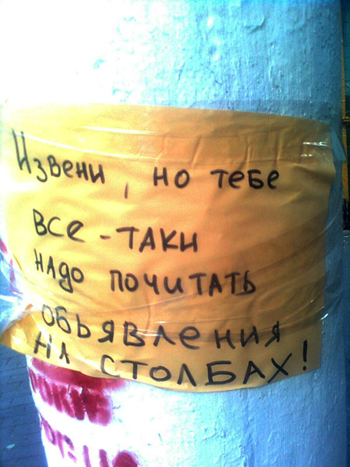 Извени, но тебе
все-таки
надо почитать
обьявления
на столбах!